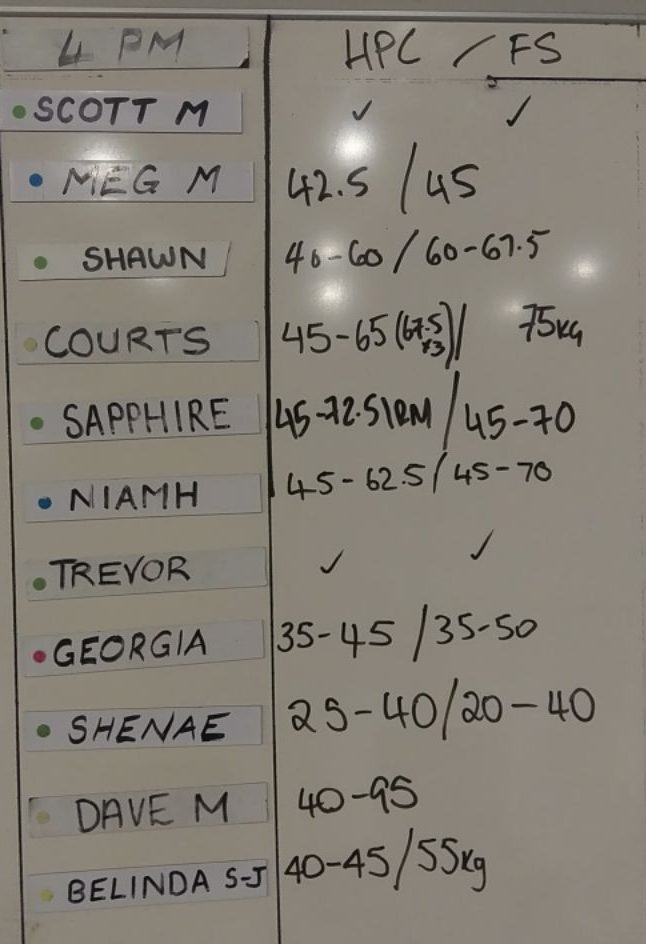 4 PM HPC / FS
SCOTT M ✓ ✓
MEG M 42.5 / 45
SHAWN 40-60 / 60-67.5
COURTS 45-65 (67.5 x3) / 75kg
SAPPHIRE 45-72.5 1RM / 45-70
NIAMH 45-62.5 / 45-70
TREVOR ✓ ✓
GEORGIA 35-45 / 35-50
SHENAE 25-40 / 20-40
DAVE M 40-95
BELINDA S-J 40-45 / 55kg